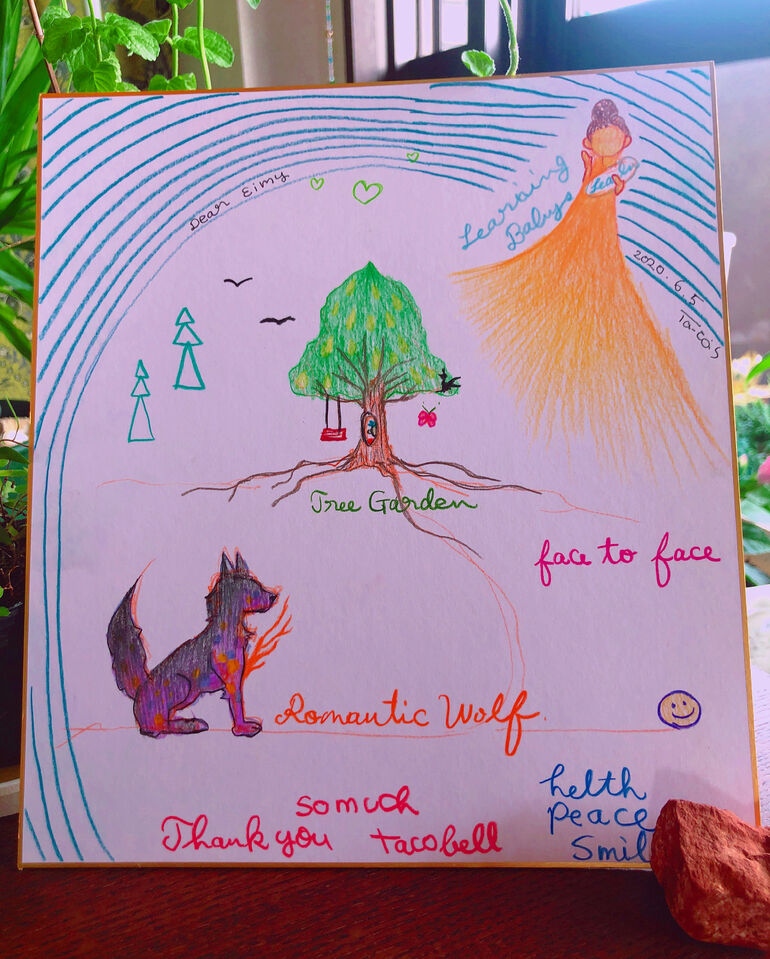 Dear Eimy
Learning
Babys
2020.6.5
Ta-co's
Tree Garden
face to face
Romantic Wolf.
so much
Thank you tacobell
helth
peace
Smil